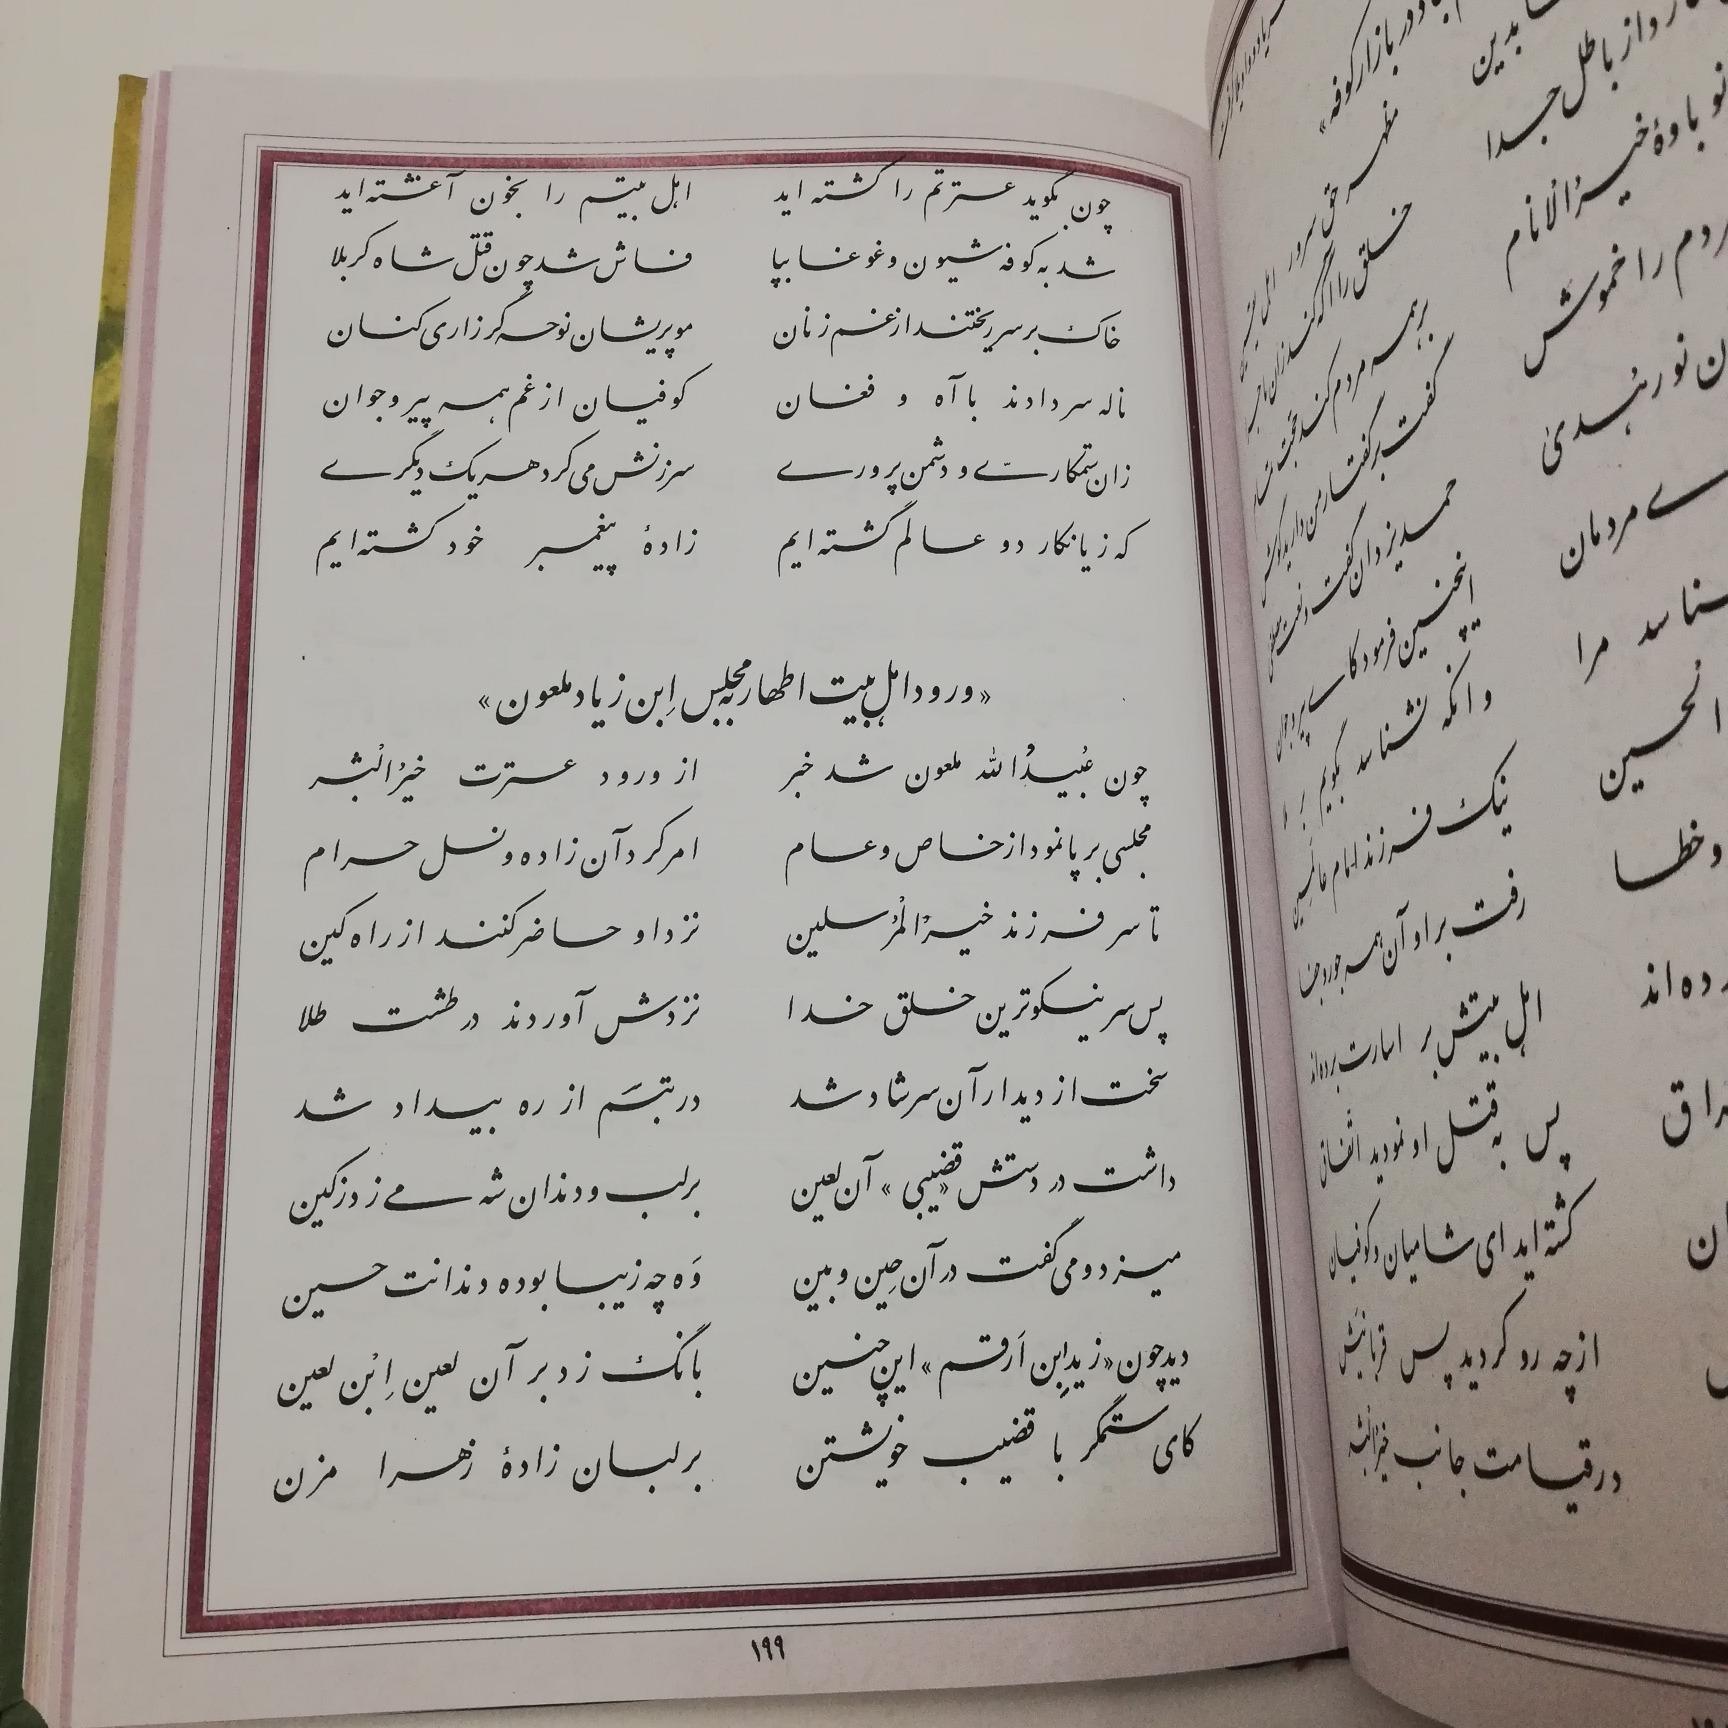 چون بگوید عترتم را کشته اید اهل بیتم را بخون آغشته اید
شد به کوفه شیون و غوغا بپا فاش شد چون قتل شاه کربلا
خاک بر سر ریختند از غم زنان مو پریشان نوحه گر زاری کنان
ناله سر دادند با آه و فغان کوفیان از غم همه پیر و جوان
زان ستمکاری و دشمن پروری سرزنش می کرد هر یک دیگری
که زیانکار دو عالم گشته ایم زادهٔ پیغمبر خود کشته ایم
«ورود اهل بیت اطهار به مجلس اِبن زیاد ملعون»
چون عُبیدُالله ملعون شد خبر از ورود عترت خیرُالبشر
مجلسی بر پا نمود از خاص و عام امر کرد آن زاده و نسل حرام
تا سر فرزند خیرُالمُرسلین نزد او حاضر کنند از راه کین
پس سر نیکوترین خلق خدا نزدش آوردند در طشت طلا
سخت از دیدار آن سر شاد شد در تبسّم از ره بیداد شد
داشت در دستش «قضیبی» آن لعین بر لب و دندان شه می زد ز کین
میزد و می گفت در آن حِین و بین وَه چه زیبا بوده دندانت حسین
دید چون «زید اِبن اَرقم» این چنین بانگ زد بر آن لعین اِبْن لعین
کای ستمگر با قضیب خویشتن بر لبان زادهٔ زهرا مزن
۱۹۹
در بازار کوفه»
خیرُالانام
خلق را
نور هُدی
حمد یزدان گفت و نعت
مردمان
اینچنین فرمود
وانکه نشناسد بگویم
مرا
الحسین
نیک فرزند امام
و خطا
رفت بر او آن همه جور و جفا
اهل بیتش بر اسارت برده اند
پس به قتل او نمودید اتفاق
کشته اید ای شامیان و کوفیان
از چه رو کردید پس قربانیش
در قیامت جانب خیرُالبشر